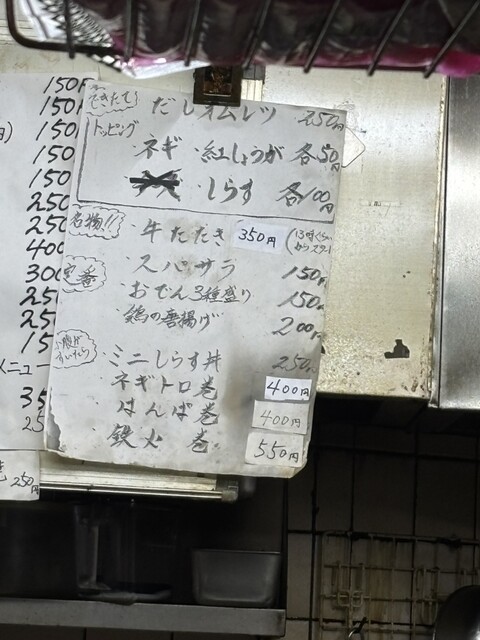 150円
150
150
150
150
250
250
400
300
250
25
15
メニュー
35
25
250円
できたて! だしオムレツ 250円
トッピング
・ネギ ・紅しょうが 各50円
・しらす 各100円
名物!! ・牛たたき 350円 (13時ぐらいからスタート
定番 ・スパサラ 150円
・おでん3種盛り 150円
・鶏の唐揚げ 200円
お腹がすいたら ・ミニしらす丼 250円
ネギトロ巻 400円
はんぱ巻 400円
・鉄火巻 550円